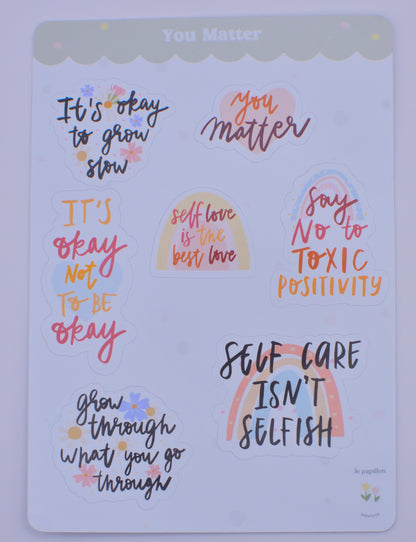 You Matter
It's okay
to grow
slow
you
matter
IT'S
okay
Not
TO BE
okay
self love
is the
best love
Say
No to
TOXIC
POSITIVITY
SELF CARE
ISN'T
SELFISH
grow
through
what you go
through
le papillon